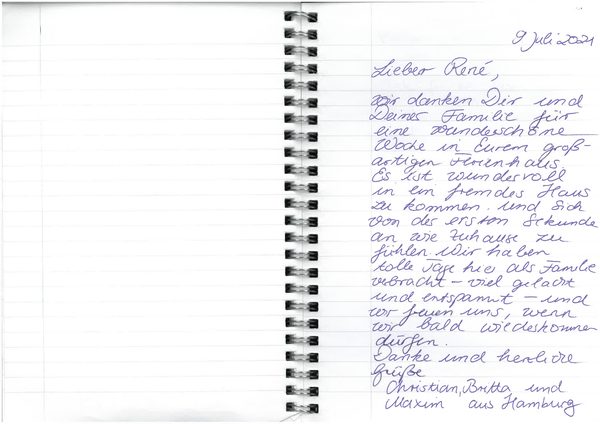 9 Juli 2021
Lieber René,
wir danken Dir und
Deiner Familie für
eine wunderschöne
Woche in Eurem groß-
artigen Ferienhaus.
Es ist wundervoll
in ein fremdes Haus
zu kommen und sich
von der ersten Sekunde
an wie Zuhause zu
fühlen. Wir haben
tolle Tage hier als Familie
verbracht – viel gelacht
und entspannt – und
wir freuen uns, wenn
wir bald wiederkommen
dürfen.
Danke und herzliche
Grüße
Christian, Britta und
Maxim aus Hamburg